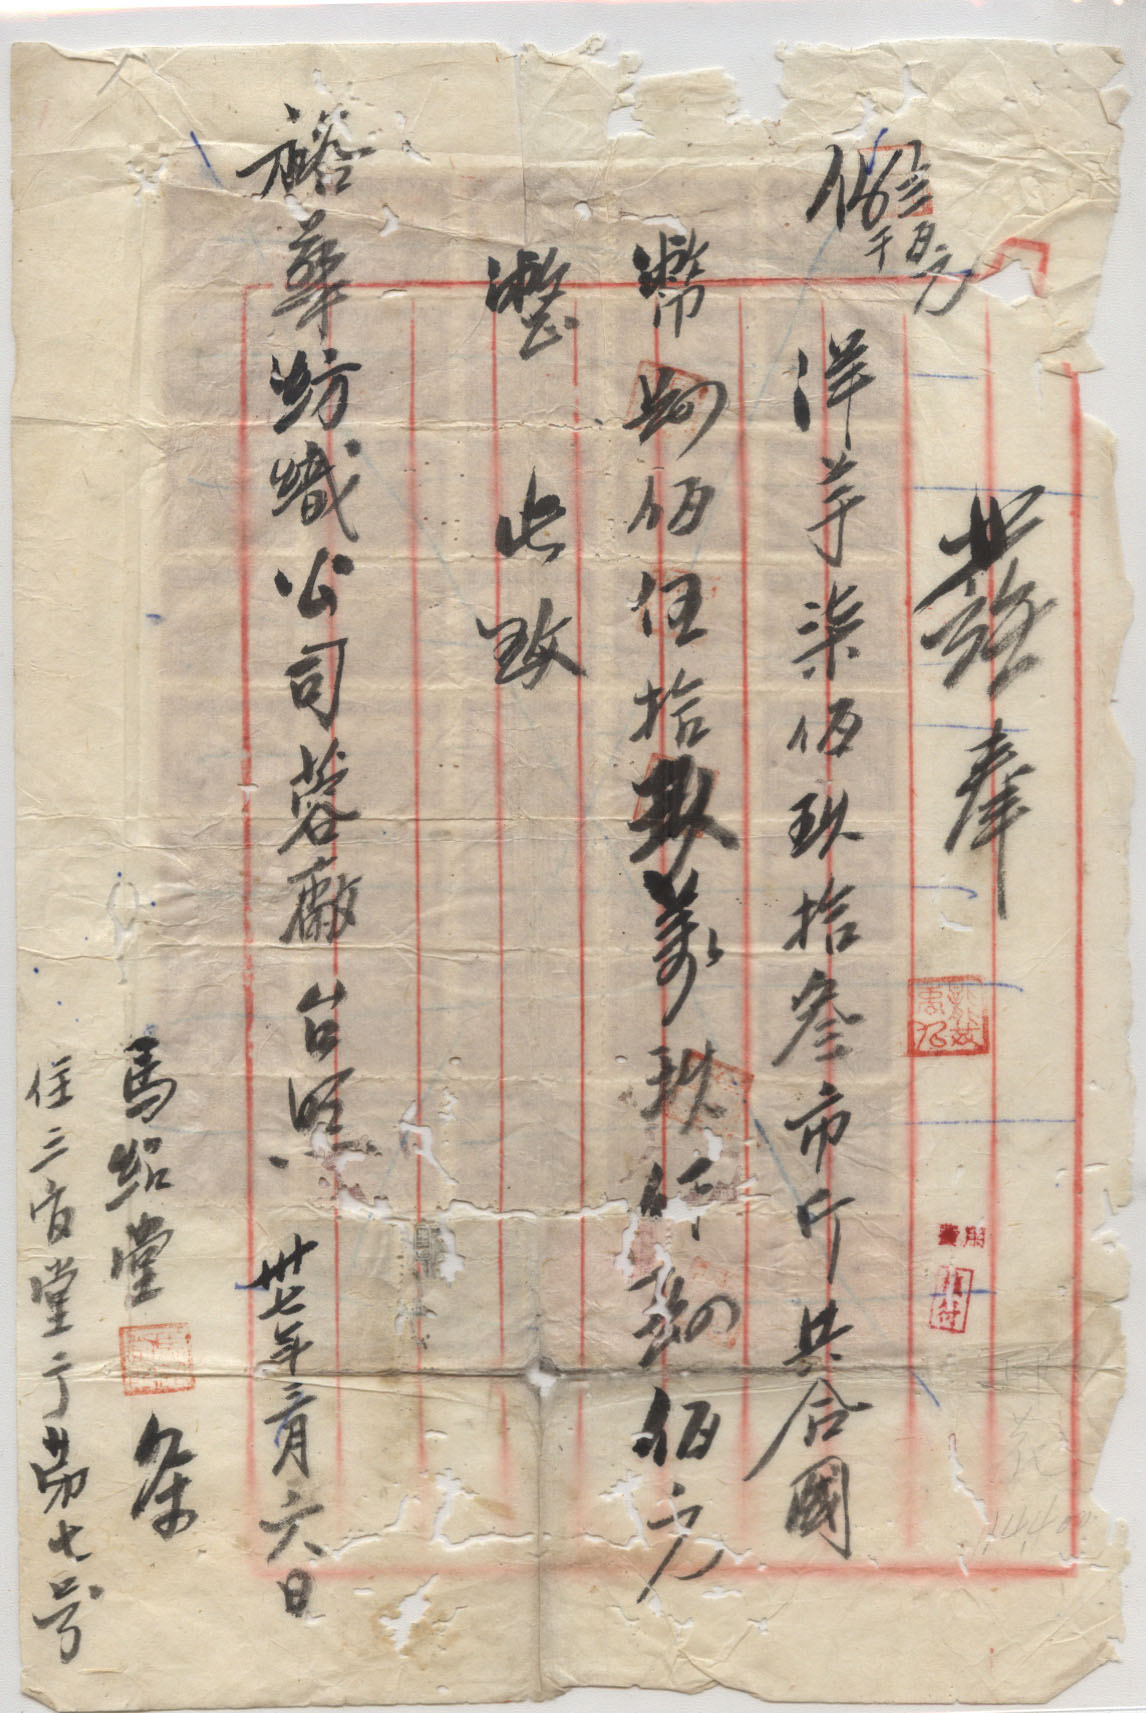 茲發奉
洋芋柒佰玖拾叁市斤共合國
幣捌佰伍拾玖萬玖仟捌佰元
整 此致
裕華紡織公司蓉廠台照
卅七年三月六日
馬紹堂 条
住三官堂二丁第七号
費用
付